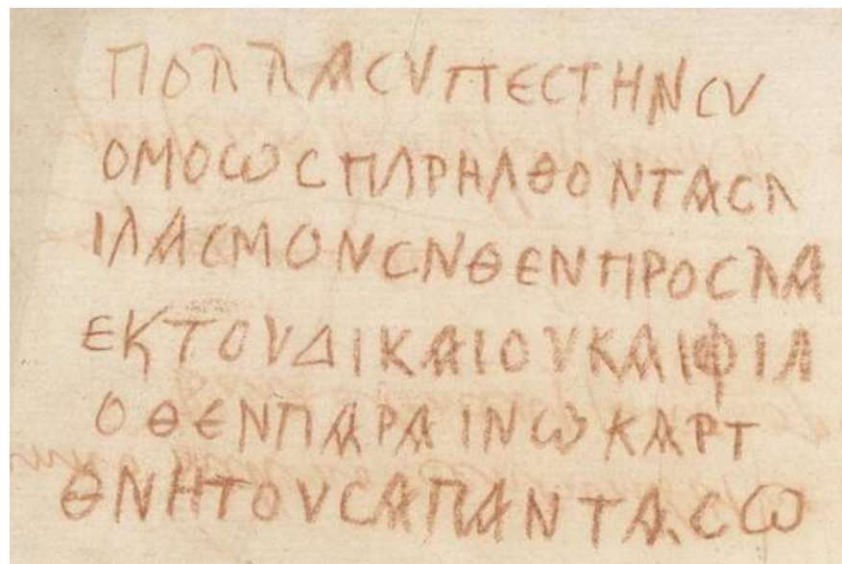 ΠΟΛΛΑCΥΠΕCΤΗΝCΥ
ΟΜΟΩCΠΑΡΗΛΘΟΝΤΑCΛ
ΙΛΑCΜΟΝCΝΘΕΝΠΡΟCΛΑ
ΕΚΤΟΥΔΙΚΑΙΟΥΚΑΙΦΙΛ
ΟΘΕΝΠΑΡΑΙΝΩΚΑΡΤ
ΘΝΗΤΟΥCΑΠΑΝΤΑCΩ